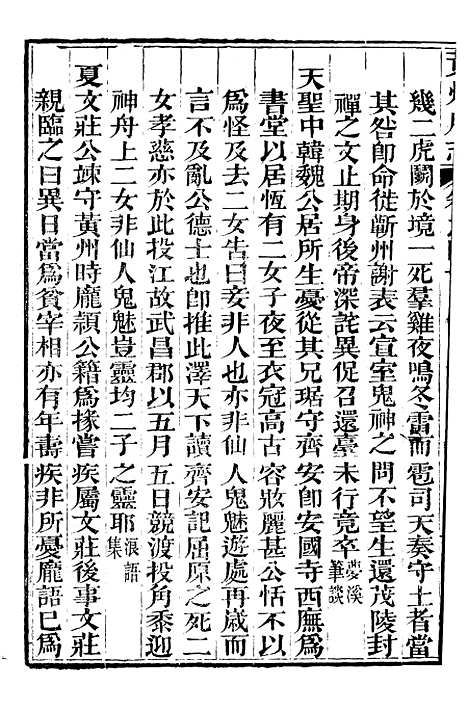 幾二虎鬬於境一死羣雞夜鳴冬雷而雹司天奏守土者當
其咎卽命徙蘄州謝表云宣室鬼神之問不望生還茂陵封
禪之文止期身後帝深詫異促召還臺未行竟卒夢溪筆談
天聖中韓魏公居所生憂從其兄琚守齊安卽安國寺西廡爲
書堂以居恆有二女子夜至衣冠高古容妝麗甚公恬不以
爲怪及去二女吿曰妾非人也亦非仙人鬼魅遊處再歲而
言不及亂公德士也卽推此澤天下讀齊安記屈原之死二
女孝慈亦於此投江故武昌郡以五月五日競渡投角黍迎
神舟上二女非仙人鬼魅豈靈均二子之靈耶浪語集
夏文莊公竦守黃州時龐潁公籍爲掾嘗疾屬文莊後事文莊
親臨之曰異日當爲貧宰相亦有年壽疾非所憂龐語已爲